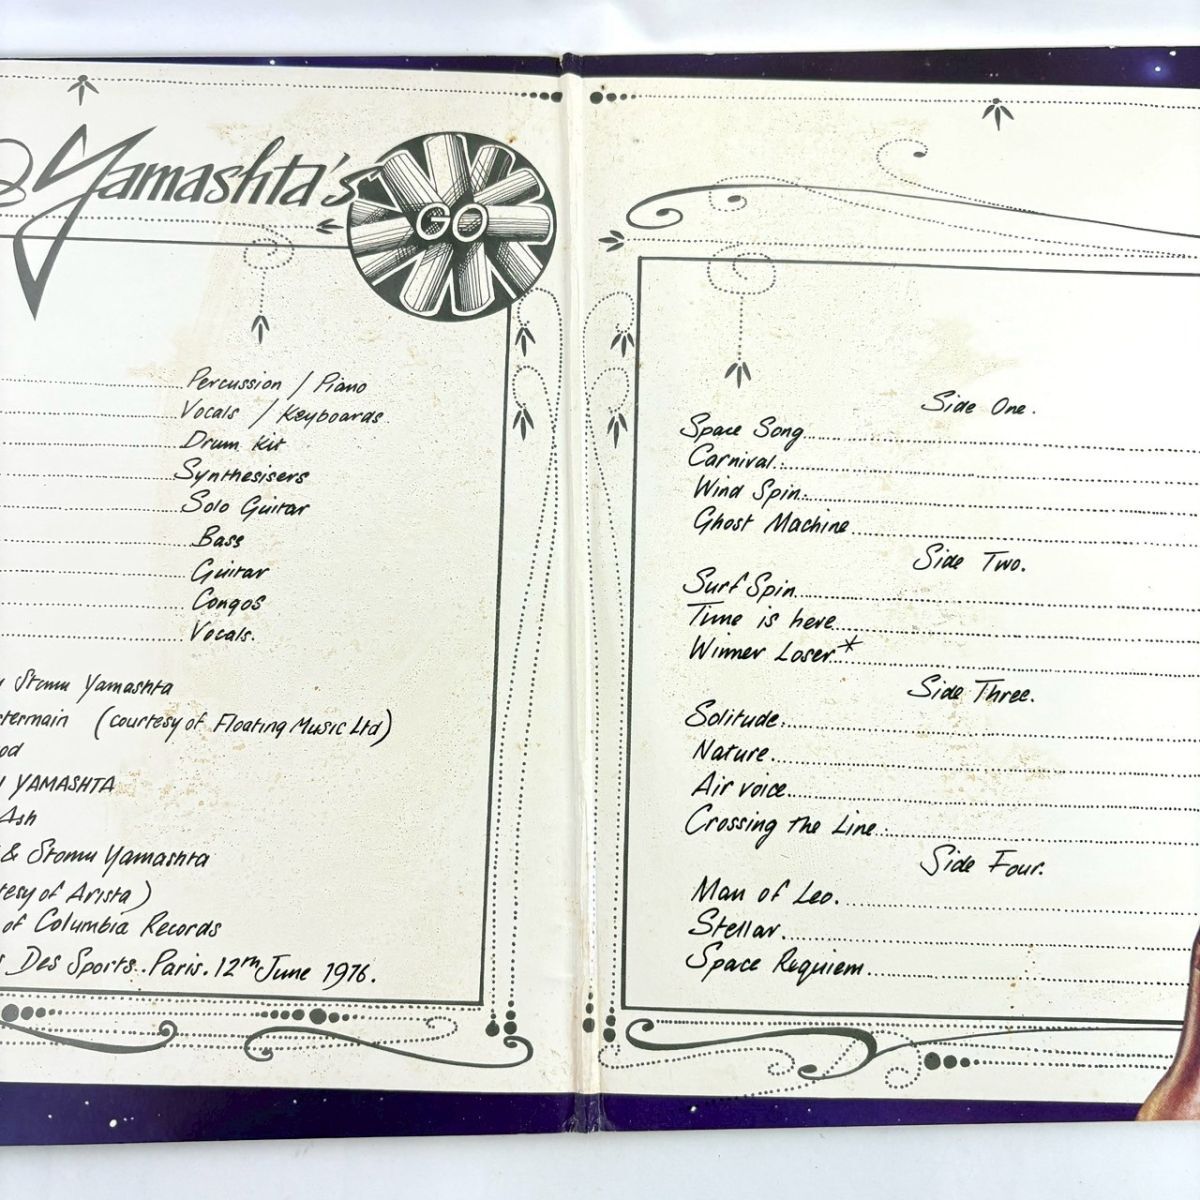 Yamashta's
GO
Percussion / Piano
Vocals / Keyboards.
Drum Kit
Synthesisers
Solo Guitar
Bass
Guitar
Congos
Vocals.
Stomu Yamashta
(courtesy of Floating Music Ltd)
YAMASHTA
Ash
& Stomu Yamashta
of Arista)
of Columbia Records
Des Sports. Paris. 12th June 1976.
Side One.
Space Song
Carnival.
Wind Spin.
Ghost Machine
Side Two.
Surf Spin.
Time is here
Winner Loser*
Side Three.
Solitude.
Nature.
Air voice.
Crossing the Line.
Side Four.
Man of Leo.
Stellar.
Space Requiem